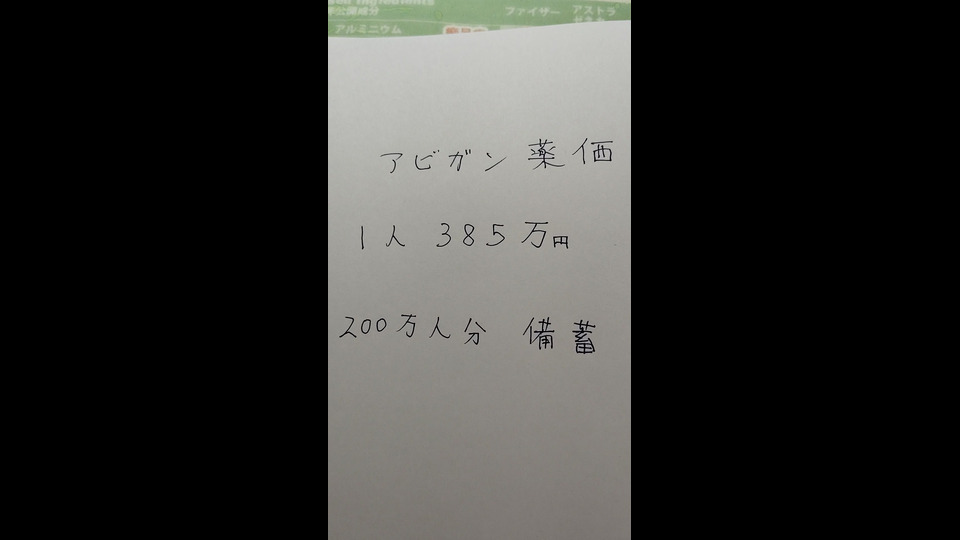 公開成分
ファイザー アストラ
アルミニウム
アビガン 薬価
1人 385万円
200万人分 備蓄